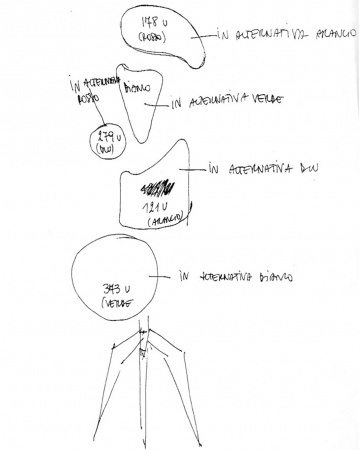 178 U
(ROSSO)
IN ALTERNATIVA ARANCIO
IN ALTERNATIVA
ROSSO
BIANCO
IN ALTERNATIVA VERDE
279 U
(BLU)
IN ALTERNATIVA BLU
121 U
(ARANCIO)
343 U
(VERDE
IN ALTERNATIVA BIANCO